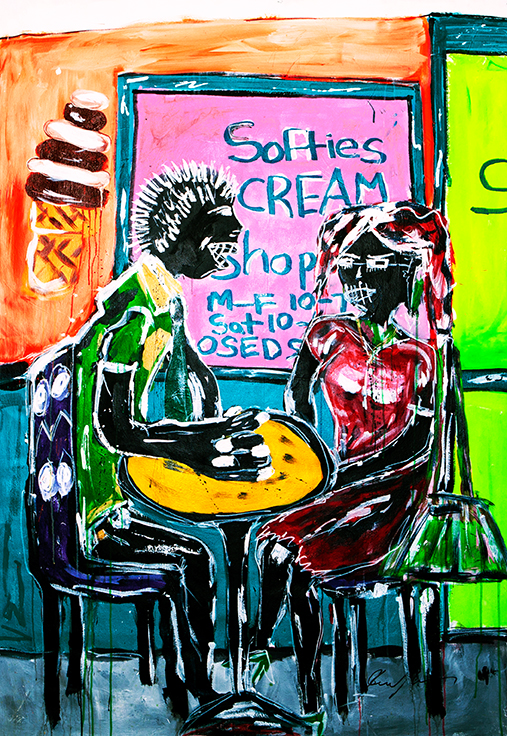 Softies
CREAM
shop
M-F 10-7
Sat 10-
OSEDS
S